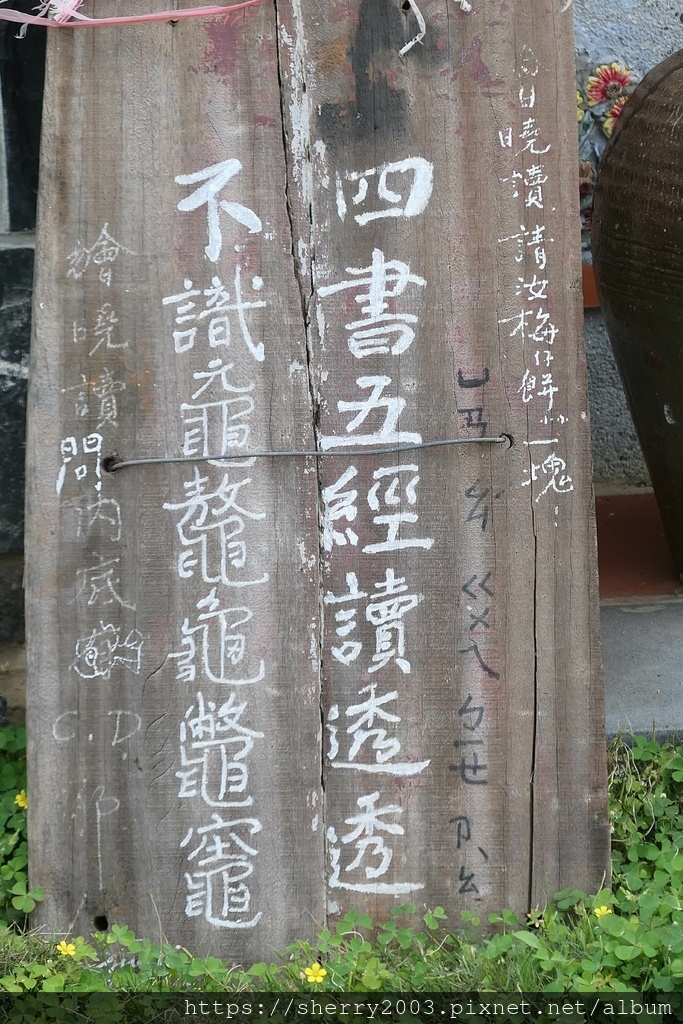 日曉讀,請汝梅仔餅一塊!
ㄩㄢˊ ㄠˊ ㄍㄨㄟ ㄅㄧㄝ ㄗㄠˋ
四書五經讀透透
不識黿鼇龜鼈竈
繪曉讀問內底 C.D
https://sherry2003.pixnet.net/album